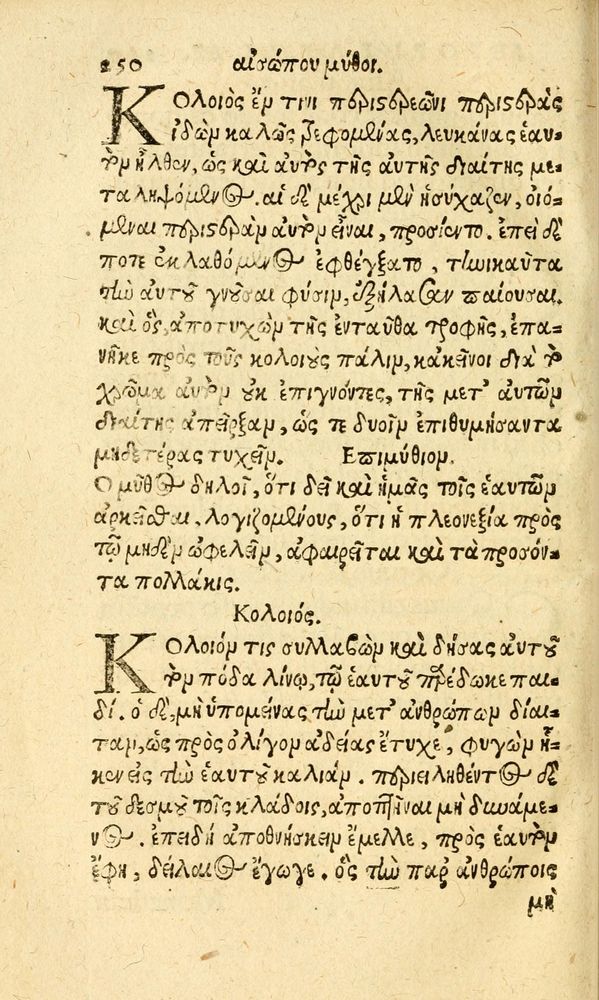 250 αἰσώπου μύθοι.
Κολοιὸς ἔν τινι περιστερεῶνι περιστερὰς
ἰδὼν καλῶς τρεφομένας, λευκάνας ἑαυ-
τὸν ἦλθεν, ὡς καὶ αὐτὸς τῆς αὐτῆς διαίτης με-
ταληψόμενος. αἱ δὲ μέχρι μὲν ἡσύχαζεν, οἰό-
μεναι περιστερὰν αὐτὸν εἶναι, προσίεντο. ἐπεὶ δέ
ποτε ἐκλαθόμενος ἐφθέγξατο, τηνικαῦτα
τὴν αὐτοῦ γνοῦσαι φύσιν, ἐξήλασαν παίουσαι.
καὶ ὃς, ἀποτυχὼν τῆς ἐνταῦθα τροφῆς, ἐπα-
νῆκε πρὸς τοὺς κολοιοὺς πάλιν, κἀκεῖνοι διὰ τὸ
χρῶμα αὐτὸν οὐκ ἐπιγνόντες, τῆς μετ' αὐτῶν
διαίτης ἀπεῖρξαν, ὥς τε δυοῖν ἐπιθυμήσαντα
μηδετέρας τυχεῖν. Επιμύθιον.
Ο μῦθος δηλοῖ, ὅτι δεῖ καὶ ἡμᾶς τοῖς ἑαυτῶν
ἀρκεῖσθαι, λογιζομένους, ὅτι ἡ πλεονεξία πρὸς
τῷ μηδὲν ὠφελεῖν, ἀφαιρεῖται καὶ τὰ προσόν-
τα πολλάκις.
Κολοιός.
Κολοιόν τις συλλαβὼν καὶ δήσας αὐτοῦ
τὸν πόδα λίνῳ, τῷ ἑαυτοῦ παρέδωκε παι-
δί. ὁ δὲ, μὴ ὑπομείνας τὴν μετ' ἀνθρώπων δίαι-
ταν, ὡς πρὸς ὀλίγον ἀδείας ἔτυχε, φυγὼν ἧ-
κεν εἰς τὴν ἑαυτοῦ καλιάν. περιειληθέντος δὲ
τοῦ δεσμοῦ τοῖς κλάδοις, ἀποπτῆναι μὴ δυνάμε-
νος. ἐπειδὴ ἀποθνήσκειν ἔμελλε, πρὸς ἑαυτὸν
ἔφη, δείλαιος ἔγωγε. ὃς τὴν παρ' ἀνθρώποις
μὴ